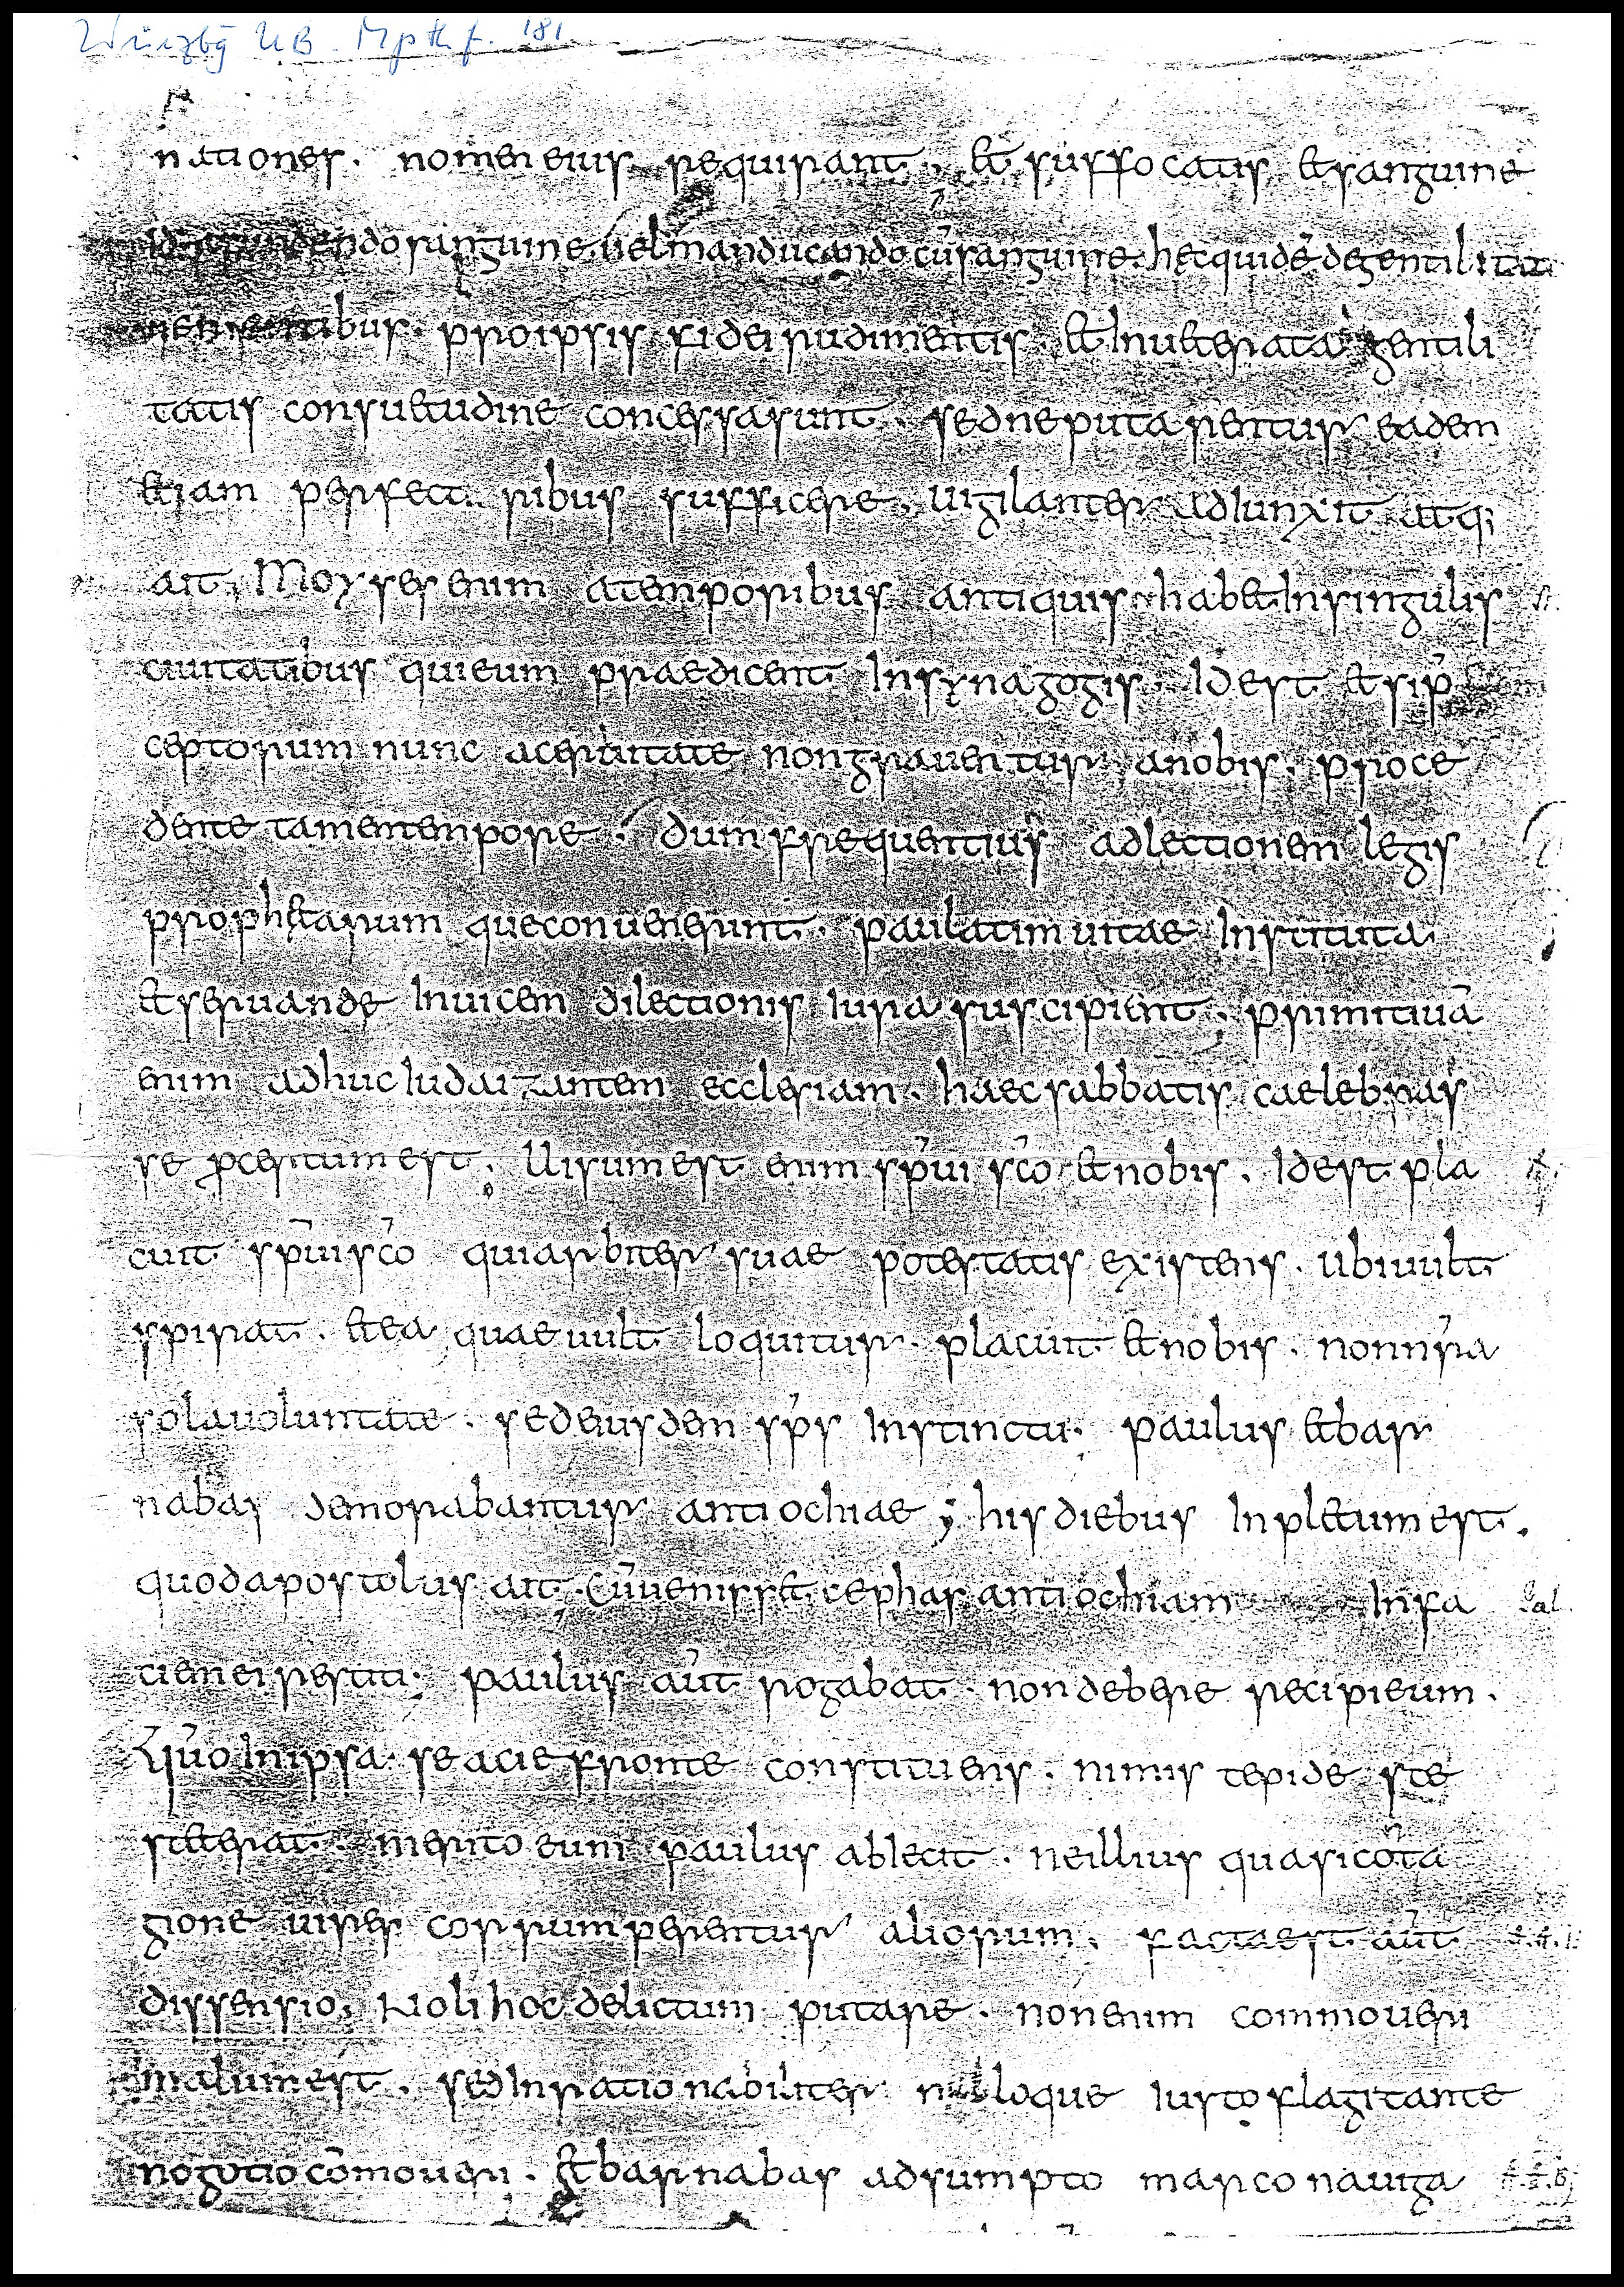 Würzbg UB Mp th f. 181
nationes. nomen eius requirant. et suffocatis et sanguine
fundendo sanguine. uel manducando cū sanguine. hęc quidē de gentilitate
uenientibus. pro ipsis fidei rudimentis. et Inueterata gentili
tatis consuetudine concessa sunt. sed ne putarentur eadem
etiam perfect ribus sufficere. uigilanter adIunxit atq;
ait. Moyses enim a temporibus antiquis habet In singulis
ciuitatibus qui eum praedicent In synagogis. Id est etsi p
ceptorum nunc aceruitate non grauentur a nobis. proce
dente tamen tempore. dum frequentius ad lectionem legis
prophetarum que conuenerunt. paulatim uitae Instituta
et seruande Inuicem dilectionis Iura suscipient; primitiuā
enim adhuc Iudaizantem ecclesiam. haec sabbatis caelebras
se pcertum est. Uisum est enim sp̄ui sc̄o et nobis. Id est pla
cuit sp̄ui sc̄o qui arbiter suae potestatis existens. ubi uult
spirat. et ea quae uult loquitur. placuit et nobis. non nr̄a
sola uoluntate. sed eiusdem sp̄s Instinctu. paulus et bar
nabas demorabantur antiochiae; his diebus Inpletum est.
quod apostolus ait. Cū uenisset cephas antiochiam In fa
ciem ei restiti. paulus aūt rogabat. non debere recipi eum.
Qūo In ipsa se acie fronte constituens. nimis tepide ste
steterat. merito eum paulus abIecit. ne illius quasi cōta
gione uires corrumperentur aliorum. facta est aūt
dissensio; Noli hoc delictum putare. non enim commoueri
malum est. sed Inrationabiliter nulloque Iusto flagitante
nogotio cōmoueri. Et barnabas adsumpto marco nauiga